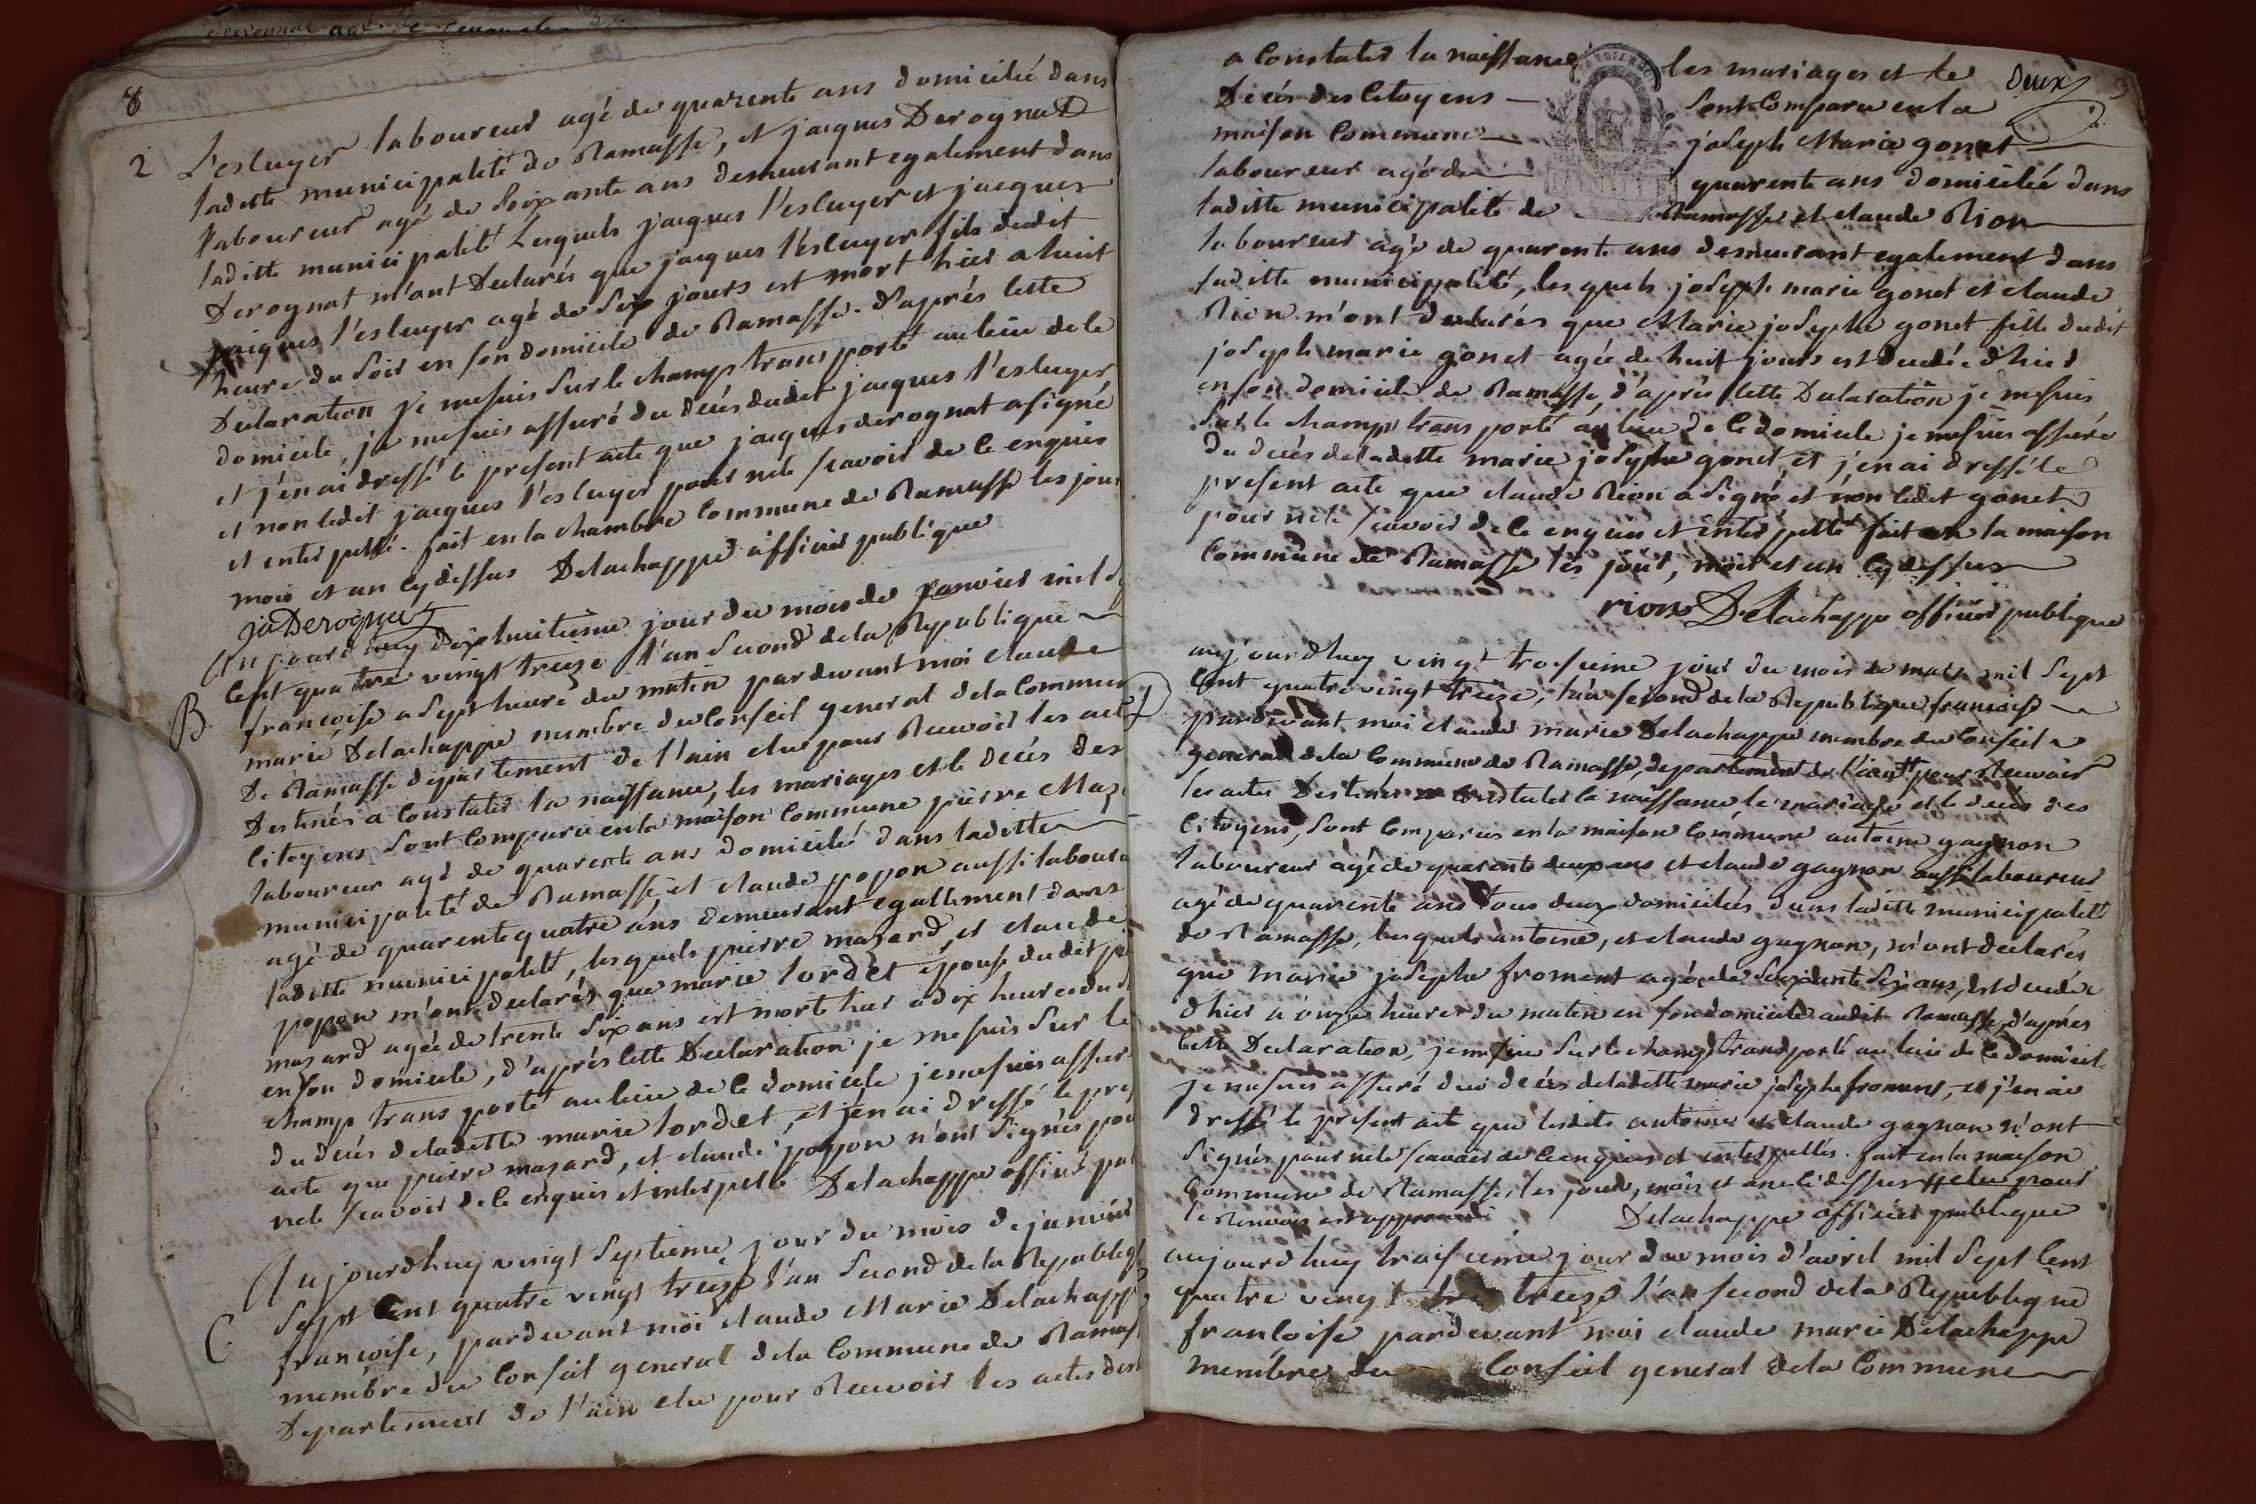 8
2 L'escuyer laboureur agé de quarente ans domicilié dans
laditte municipalité de Ramasse, et jacques Derognat
laboureur agé de soixante ans demeurant egalement dans
laditte municipalité Lesquels jacques l'escuyer et jacques
Derognat m'ont Declarés que jacques l'escuyer fils dudit
jacques l'escuyer agé de six jours est mort hier a huit
heure du soir en son domicile de Ramasse. d'après cette
Declaration je me suis sur le champ transporté au lieu de ce
domicile, je me suis assuré du decès dudit jacques l'escuyer
et j'en ai dressé le present acte que jacques derognat a signé
et non ledit jacques l'escuyer pour ne le scavoir de ce enquis
et interpellé. fait en la chambre commune de Ramasse les jour
mois et an cy dessus Delachappe officier publique
ja Derognat
Aujourd'huy dixhuitieme jour du mois de janvier mil s
B cent quatre vingt treize l'an second de la Republique
francoise a sept heure du matin pardevant moi claude
marie Delachappe membre du Conseil general de la Commun
De Ramasse departement de l'ain elu pour Recevoir les act
Destinés a Constater la naissance, les mariages et le decès des
Citoyens sont Comparu en la maison Commune pierre Maz
laboureur agé de quarente ans domicilié dans laditte
municipalité de Ramasse, et claude popon aussi labour
agé de quarente quatre ans demeurant egallement dans
laditte municipalité, lesquels pierre mazard, et claude
popon m'ont declarés que marie lordet epouse dudit pi
mazard agée de trente six ans est morte hier a dix heures du
en son domicile, d'après cette Declaration je me suis sur le
champ transporté au lieu de ce domicile je me suis assur
du decès de laditte marie lordet, et j'en ai dressé le pres
acte que pierre mazard, et claude popon n'ont signés pou
ne le scavoir de ce enquis et interpellé Delachappe officier pu
Aujourdhuy vingt septieme jour du mois de janvier
C sept Cent quatre vingt treize l'an second de la Republiq
françoise, pardevant moi claude Marie Delachapp
membre du Conseil general de la Commune de Ramas
Departement de l'ain elu pour Recevoir les actes des
deux
a Constater la naissance les mariages et le
Decès des Citoyens sont Comparu en la
maison Commune joseph Marie gonet
laboureur agé de quarente ans domicilié dans
laditte municipalité de Ramasse et claude Rion
laboureur agé de quarente ans demeurant egalement dans
laditte municipalité, lesquels joseph marie gonet et claude
Rion m'ont declarés que Marie josephe gonet fille dudit
joseph marie gonet agée de huit jours est decedée d'hier
en son domicile de Ramasse, d'après cette Declaration je me suis
sur le champ transporté au lieu de ce domicile je me suis assuré
du decès de laditte marie josephe gonet, et j'en ai dressé le
present acte que claude Rion a signé et non ledit gonet
pour ne le scavoir de ce enquis et interpellé fait en la maison
Commune de Ramasse les jour, mois et an cy dessus
rion Delachappe officier publique
aujourdhuy vingt troisieme jour du mois de mars mil sept
Cent quatre vingt treize, l'an second de la Republique francoise
D pardevant moi claude marie Delachappe membre du Conseil
general de la Commune de Ramasse, departement de l'ain pour Recevoir
les actes Destinés a Constater la naissance, le mariage et le decès des
Citoyens, sont Comparus en la maison Commune antoine gagnon
laboureur agé de quarente deux ans et claude gagnon aussi laboureur
agé de quarente ans tous deux domiciliés dans laditte municipalité
de Ramasse, lesquels antoine, et claude gagnon, m'ont declarés
que marie josephe froment agée de soixante six ans, est decedée
d'hier a onze heures du matin en son domicile audit Ramasse, d'après
Cette Declaration, je me suis sur le champ transporté au lieu de ce domicile
je me suis assuré du decès de laditte marie josephe froment, et j'en ai
dressé le present acte que lesdits antoine et claude gagnon n'ont
signés pour ne le scavoir de ce enquis et interpellés. fait en la maison
Commune de Ramasse, les jour, mois et an ci dessus elu pour
le Renvoi est approuvé Delachappe officier publique
aujourdhuy troisieme jour du mois d'avril mil sept Cent
quatre vingt treize l'an second de la Republique
françoise pardevant moi claude marie Delachappe
membre du Conseil general de la Commune